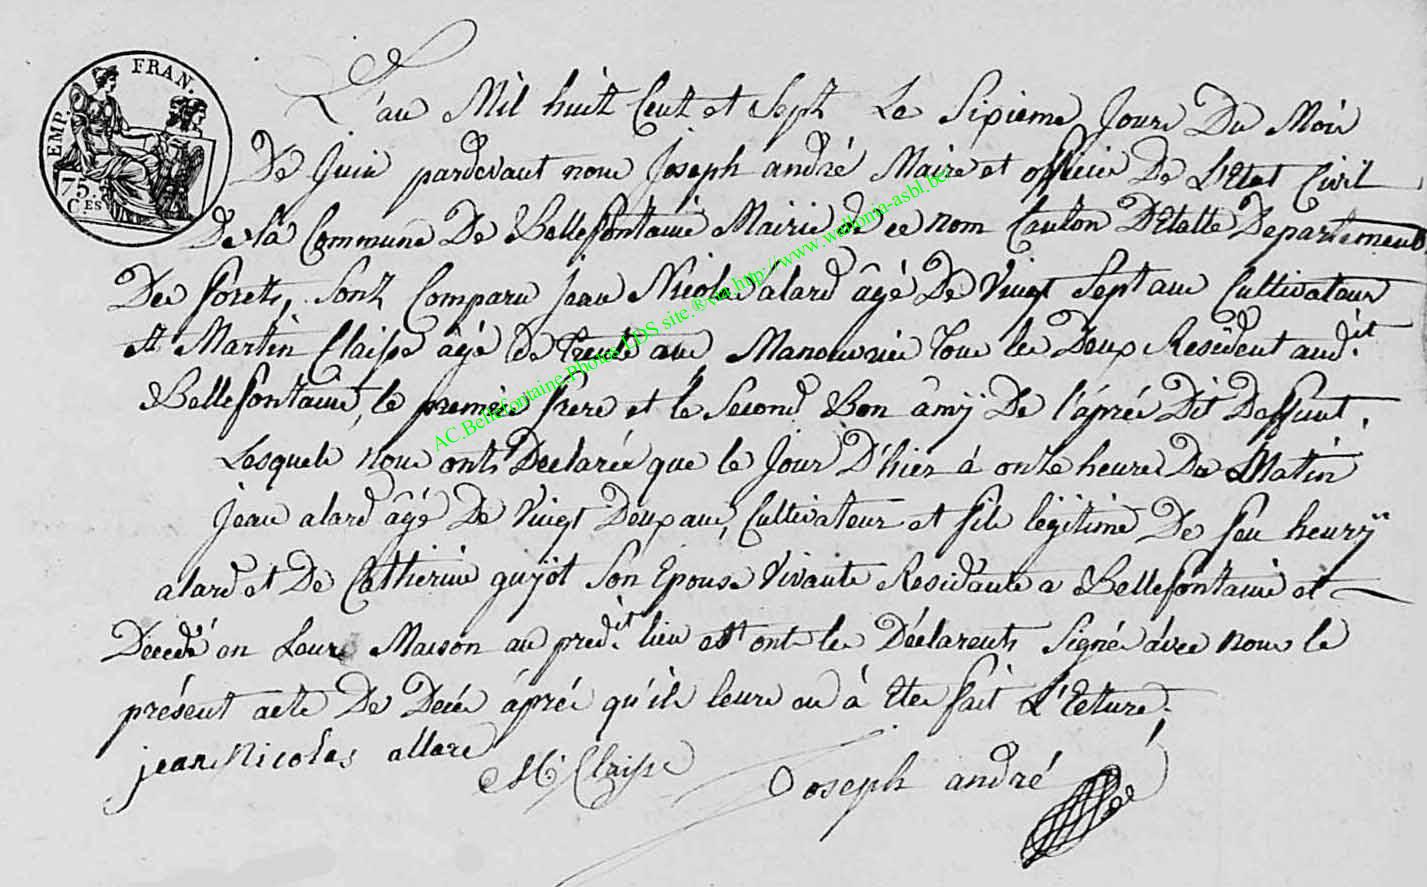 EMP. FRAN.
75.
C.ES
L'an Mil huit Cent et Sept Le Sixieme Jours Du Mois
De Juin pardevant nous Joseph andré Maire et officier De L'Etat Civil
De la Commune De Bellefontaine Mairie de ce nom Canton D'Etalle Departement
Des forets, Sont Comparu Jean Nicolas alard âgé De Vingt Sept ans Cultivateur
et Martin Claisse âgé de trente ans Manouvrier tous les Deux Resident aud.it
Bellefontaine, le premier frere et le Second Bon âmÿ De l'âpres Dit Deffunt.
Lesquels nous onts Declarés que le Jour D'hier á onze heures Du Matin
Jean alard âgé De Vingt Deux ans, Cultivateur et fils légitime De feu henrÿ
alard et De Catherine guÿot Son Epouse Vivante Residante a Bellefontaine et
Decedé en Leurs Maison au pred.it lieu et ont les Déclarents Signés avec nous le
présent acte De Decés áprés qu'ils leurs en à Eter fait L'Ecture;
jean Nicolas allard
M Claisse
Joseph andré
AC.Bellefontaine.Photos LDS site.®via http://www.wallonia-asbl.be/